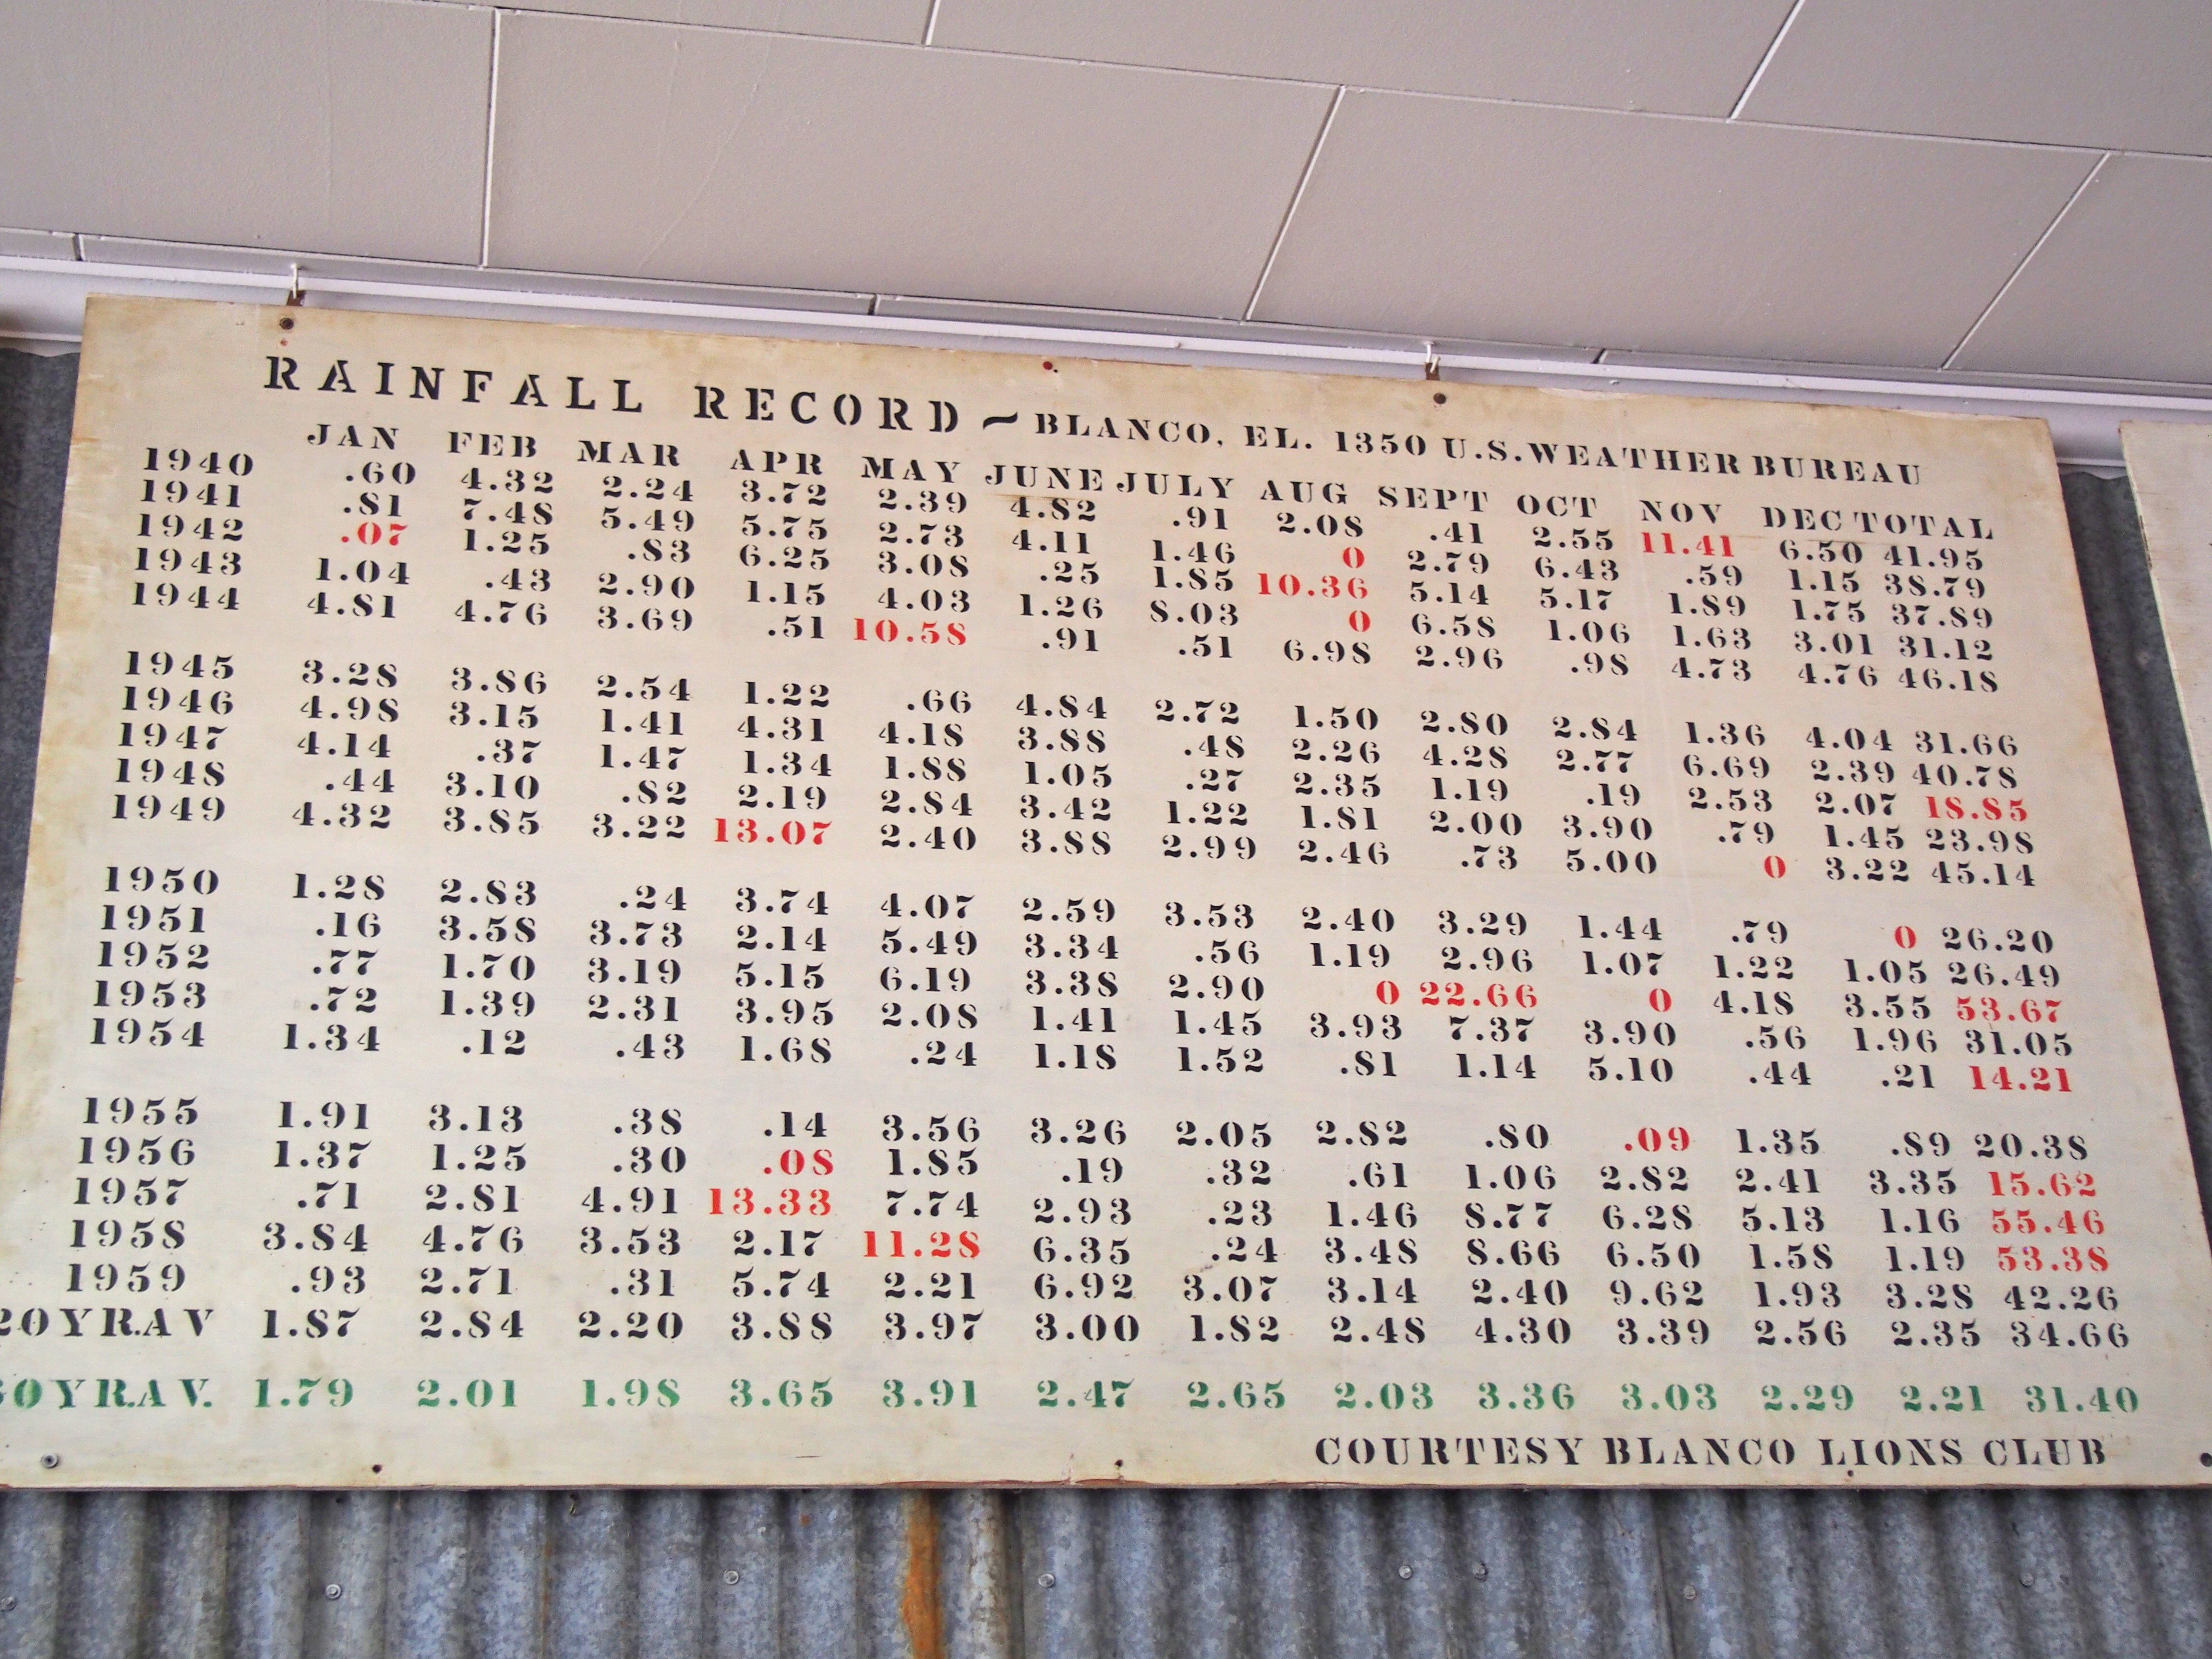 RAINFALL RECORD ~ BLANCO, EL. 1350 U.S. WEATHER BUREAU
JAN FEB MAR APR MAY JUNE JULY AUG SEPT OCT NOV DEC TOTAL
1940 .60 4.32 2.24 3.72 2.39 4.82 .91 2.08 .41 2.55 11.41 6.50 41.95
1941 .81 7.48 5.49 5.75 2.73 4.11 1.46 0 2.79 6.43 .59 1.15 38.79
1942 .07 1.25 .83 6.25 3.08 .25 1.85 10.36 5.14 5.17 1.89 1.75 37.89
1943 1.04 .43 2.90 1.15 4.03 1.26 8.03 0 6.58 1.06 1.63 3.01 31.12
1944 4.81 4.76 3.69 .51 10.58 .91 .51 6.98 2.96 .98 4.73 4.76 46.18
1945 3.28 3.86 2.54 1.22 .66 4.84 2.72 1.50 2.80 2.84 1.36 4.04 31.66
1946 4.98 3.15 1.41 4.31 4.18 3.88 .48 2.26 4.28 2.77 6.69 2.39 40.78
1947 4.14 .37 1.47 1.34 1.88 1.05 .27 2.35 1.19 .19 2.53 2.07 18.85
1948 .44 3.10 .82 2.19 2.84 3.42 1.22 1.81 2.00 3.90 .79 1.45 23.98
1949 4.32 3.85 3.22 13.07 2.40 3.88 2.99 2.46 .73 5.00 0 3.22 45.14
1950 1.28 2.83 .24 3.74 4.07 2.59 3.53 2.40 3.29 1.44 .79 0 26.20
1951 .16 3.58 3.73 2.14 5.49 3.34 .56 1.19 2.96 1.07 1.22 1.05 26.49
1952 .77 1.70 3.19 5.15 6.19 3.38 2.90 0 22.66 0 4.18 3.55 53.67
1953 .72 1.39 2.31 3.95 2.08 1.41 1.45 3.93 7.37 3.90 .56 1.96 31.05
1954 1.34 .12 .43 1.68 .24 1.18 1.52 .81 1.14 5.10 .44 .21 14.21
1955 1.91 3.13 .38 .14 3.56 3.26 2.05 2.82 .80 .09 1.35 .89 20.38
1956 1.37 1.25 .30 .08 1.85 .19 .32 .61 1.06 2.82 2.41 3.35 15.62
1957 .71 2.81 4.91 13.33 7.74 2.93 .23 1.46 8.77 6.28 5.13 1.16 55.46
1958 3.84 4.76 3.53 2.17 11.28 6.35 .24 3.48 8.66 6.50 1.58 1.19 53.38
1959 .93 2.71 .31 5.74 2.21 6.92 3.07 3.14 2.40 9.62 1.93 3.28 42.26
20YR.AV 1.87 2.84 2.20 3.88 3.97 3.00 1.82 2.48 4.30 3.39 2.56 2.35 34.66
0YR.AV. 1.79 2.01 1.98 3.65 3.91 2.47 2.65 2.03 3.36 3.03 2.29 2.21 31.40
COURTESY BLANCO LIONS CLUB